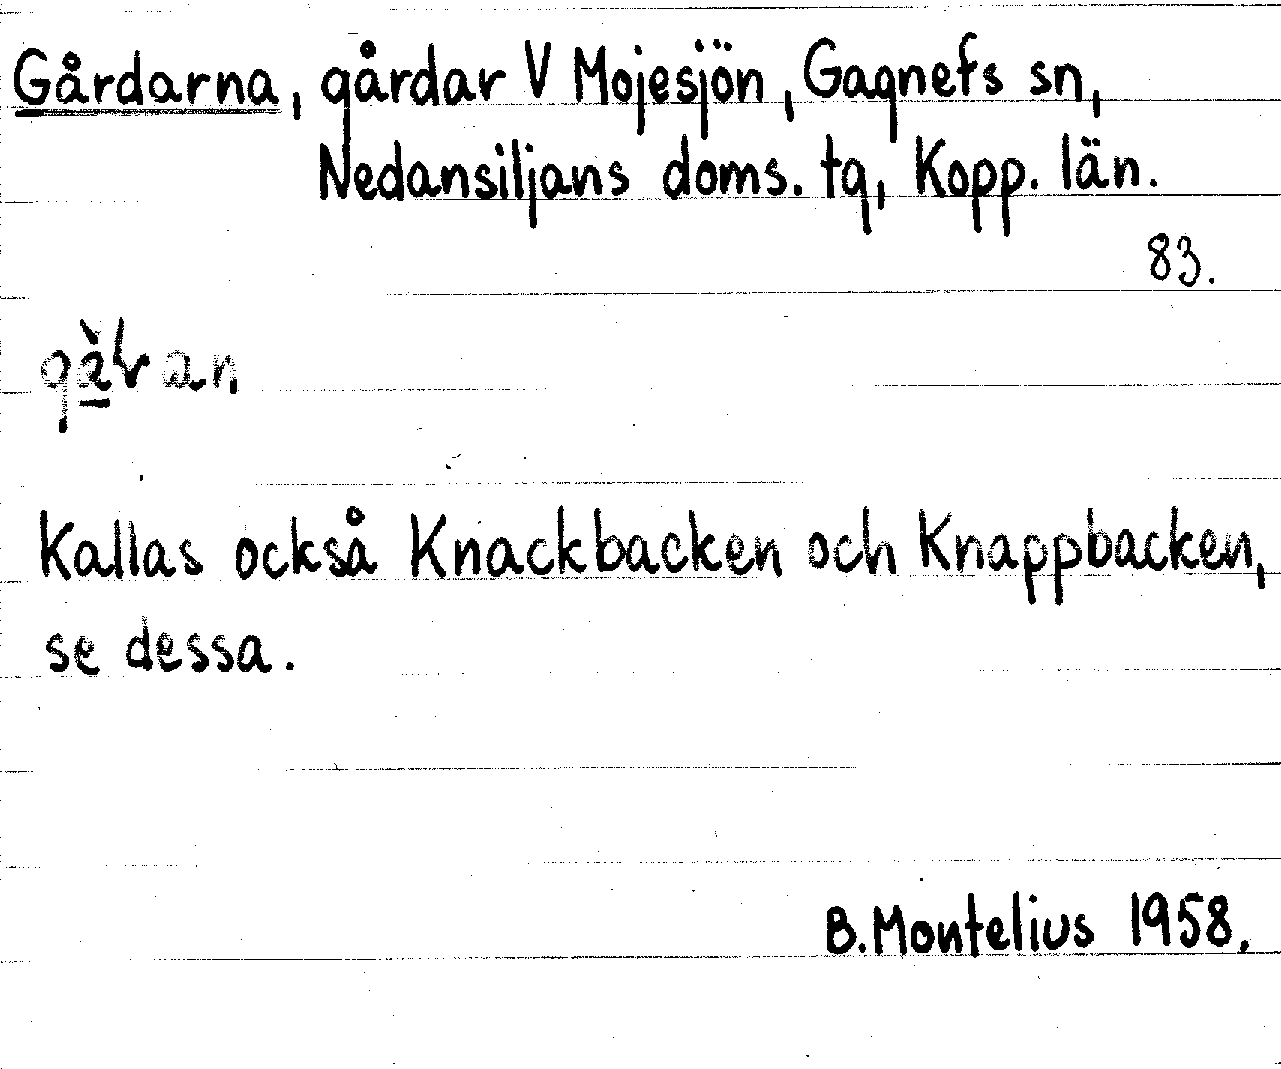 Gårdarna, gårdar V Mojesjön, Gagnefs sn,
Nedansiljans doms. tg, Kopp. län.
83.
Kallas också Knackbacken och Knappbacken,
se dessa.
B. Montelius 1958.